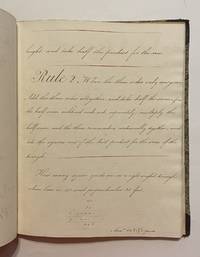 hight and take half the product for the area
Rule 2. When the three sides only are given
Add the three sides altogether and take half the sum, from
the half sum subtract each side seperately, multiply the
half sum and the three remainders continually together, and
take the square root of the last product for the area of the
triangle.
How many square yards are in a right angled triangle
whose base is 40 and perpendicular 30 feet